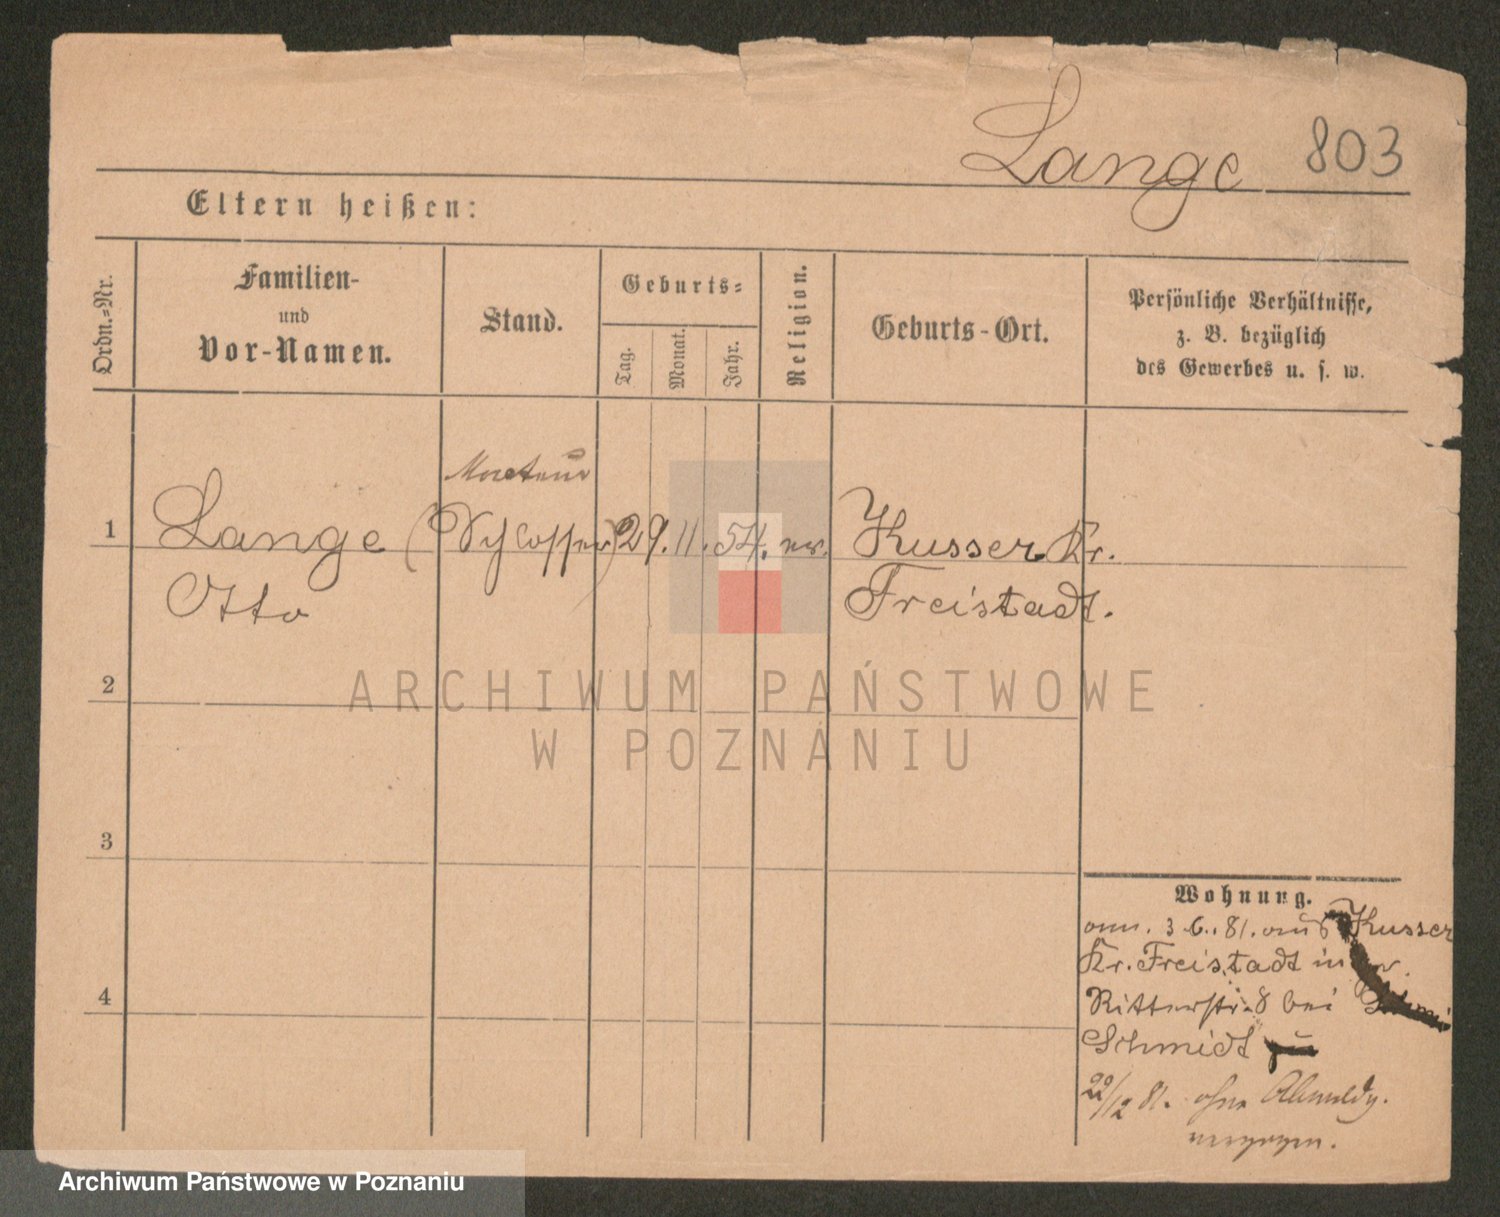 Lange 803
Eltern heißen:
Ordn.=Nr.
Familien-
und
Vor-Namen.
Stand.
Geburts=
Tag.
Monat.
Jahr.
Religion.
Geburts-Ort.
Persönliche Verhältnisse,
z. B. bezüglich
des Gewerbes u. s. w.
Monteur
1 Lange (Schlosser) 29. 11. 54. ev. Kusser Kr.
Otto Freistadt.
2
3
4
Wohnung.
3.6.81. aus Kusser
Kr. Freistadt in
Ritterstr. 8 bei
Schmidt
22/12 81. ohne Abmeldg.
verzogen.
ARCHIWUM PAŃSTWOWE
W POZNANIU
Archiwum Państwowe w Poznaniu